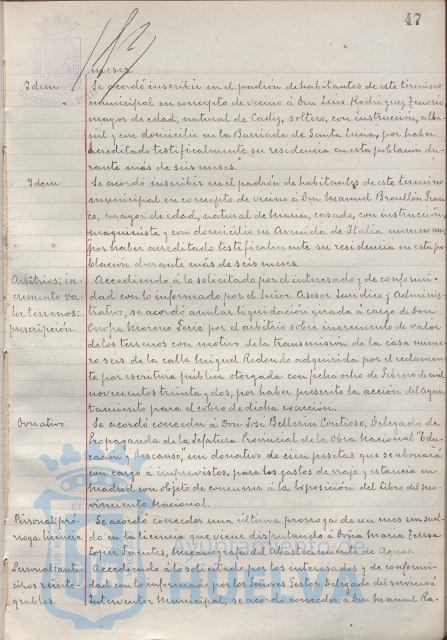 47
meses.
Idem
Se acordó inscribir en el padrón de habitantes de este término
municipal en concepto de vecino á Don Luis Rodríguez Tenorio
mayor de edad, natural de Cadiz, soltero, con instrucción, alba-
ñil y con domicilio en la Barriada de Santa Lucia, por haber
acreditado testificalmente su residencia en esta población du-
rante más de seis meses.
Idem
Se acordó inscribir en el padrón de habitantes de este término
municipal en concepto de vecino á Don Manuel Broullón Fran-
co, mayor de edad, natural de casado, con instrucción,
maquinista y con domicilio en Avenida de Italia número
por haber acreditado testificalmente su residencia en esta po-
blación durante más de seis meses.
Arbitrios: in-
cremento va-
lor terrenos:
prescripción.
Accediendo á lo solicitado por el interesado y de conformi-
dad con lo informado por el Señor Asesor Jurídico y Adminis-
trativo, se acordó anular liquidación girada á cargo de Don
Moreno por el arbitrio sobre incremento de valor
de los terrenos con motivo de la transmisión de la casa núme-
ro seis de la calle Miguel Redondo adquirida por el reclaman-
te por escritura pública otorgada con fecha ocho de Febrero de mil
novecientos treinta y dos, por haber prescrito la acción del ayun-
tamiento para el cobro de dicha exacción.
Donativo.
Se acordó conceder á Don José Bellerin Coutioso, Delegado de
Propaganda de la Jefatura Provincial de la Obra Nacional "Edu-
cación y Descanso", un donativo de cien pesetas que se abonará
con cargo á imprevistos, para los gastos de viaje y estancia en
Madrid con objeto de concurrir á la Exposición del Libro del Mo-
vimiento Nacional.
Personal: pró-
rroga licencia
Se acordó conceder una última prórroga de un mes sin suel-
do en la licencia que viene disfrutando á Doña Maria Teresa
Lopez Fuentes, mecanógrafa del Abastecimiento de Aguas.
Personal: anti-
cipos reinte-
grables.
Accediendo á lo solicitado por los interesados y de conformi-
dad con lo informado por los Señores Gestor Delegado del servicio é
Interventor Municipal, se acordó conceder á Don Manuel Ra-